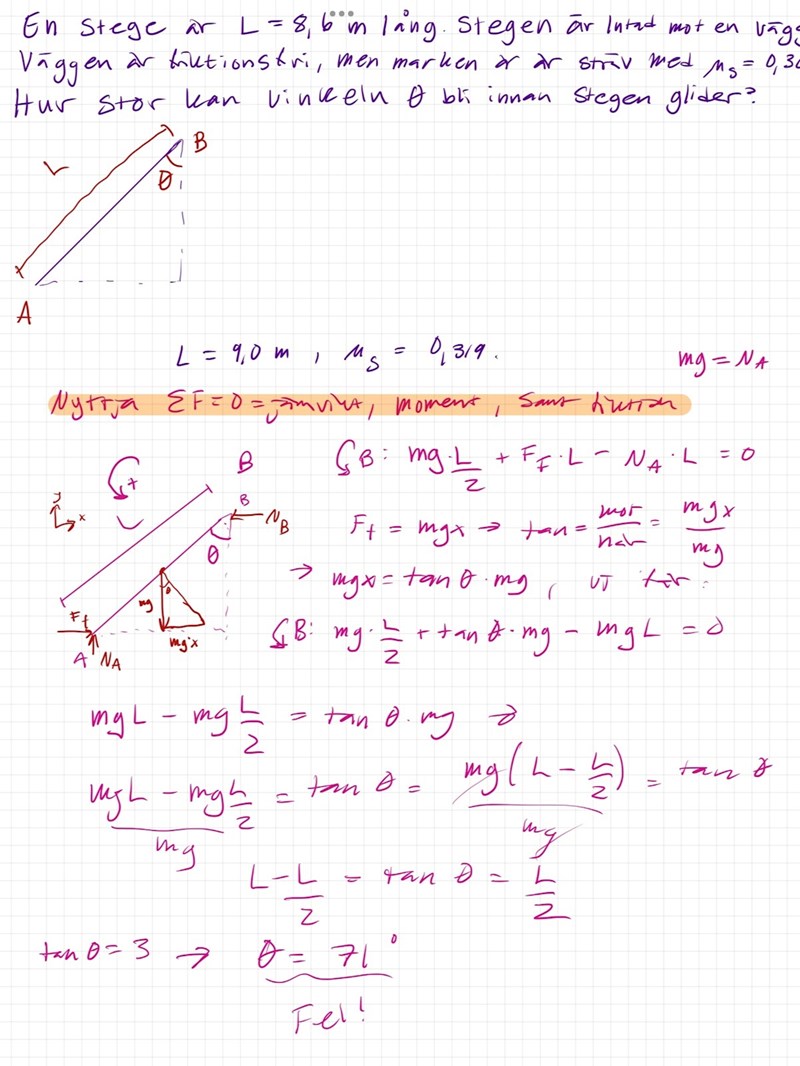 En stege är L = 8,6 m lång. Stegen är lutad mot en vägg
Väggen är friktionsfri, men marken är är sträv med μs = 0,30
Hur stor kan vinkeln θ bli innan stegen glider?
B
L
θ
A
L = 9,0 m , μs = 0,319.
mg = NA
Nyttja ΣF = 0 = jämvikt, moment, samt friktion
B: mg · L/2 + Ff · L - NA · L = 0
+
B
y
x
L
B
NB
θ
Ff = mgx → tan = mot/när = mgx/mg
→ mgx = tan θ · mg, vi får:
mg
θ
Ff
mgx
A NA
B: mg · L/2 + tan θ · mg - mgL = 0
mgL - mg L/2 = tan θ · mg →
mgL - mg L/2 / mg = tan θ = mg(L - L/2) / mg = tan θ
L - L/2 = tan θ = L/2
tan θ = 3 → θ = 71°
Fel!